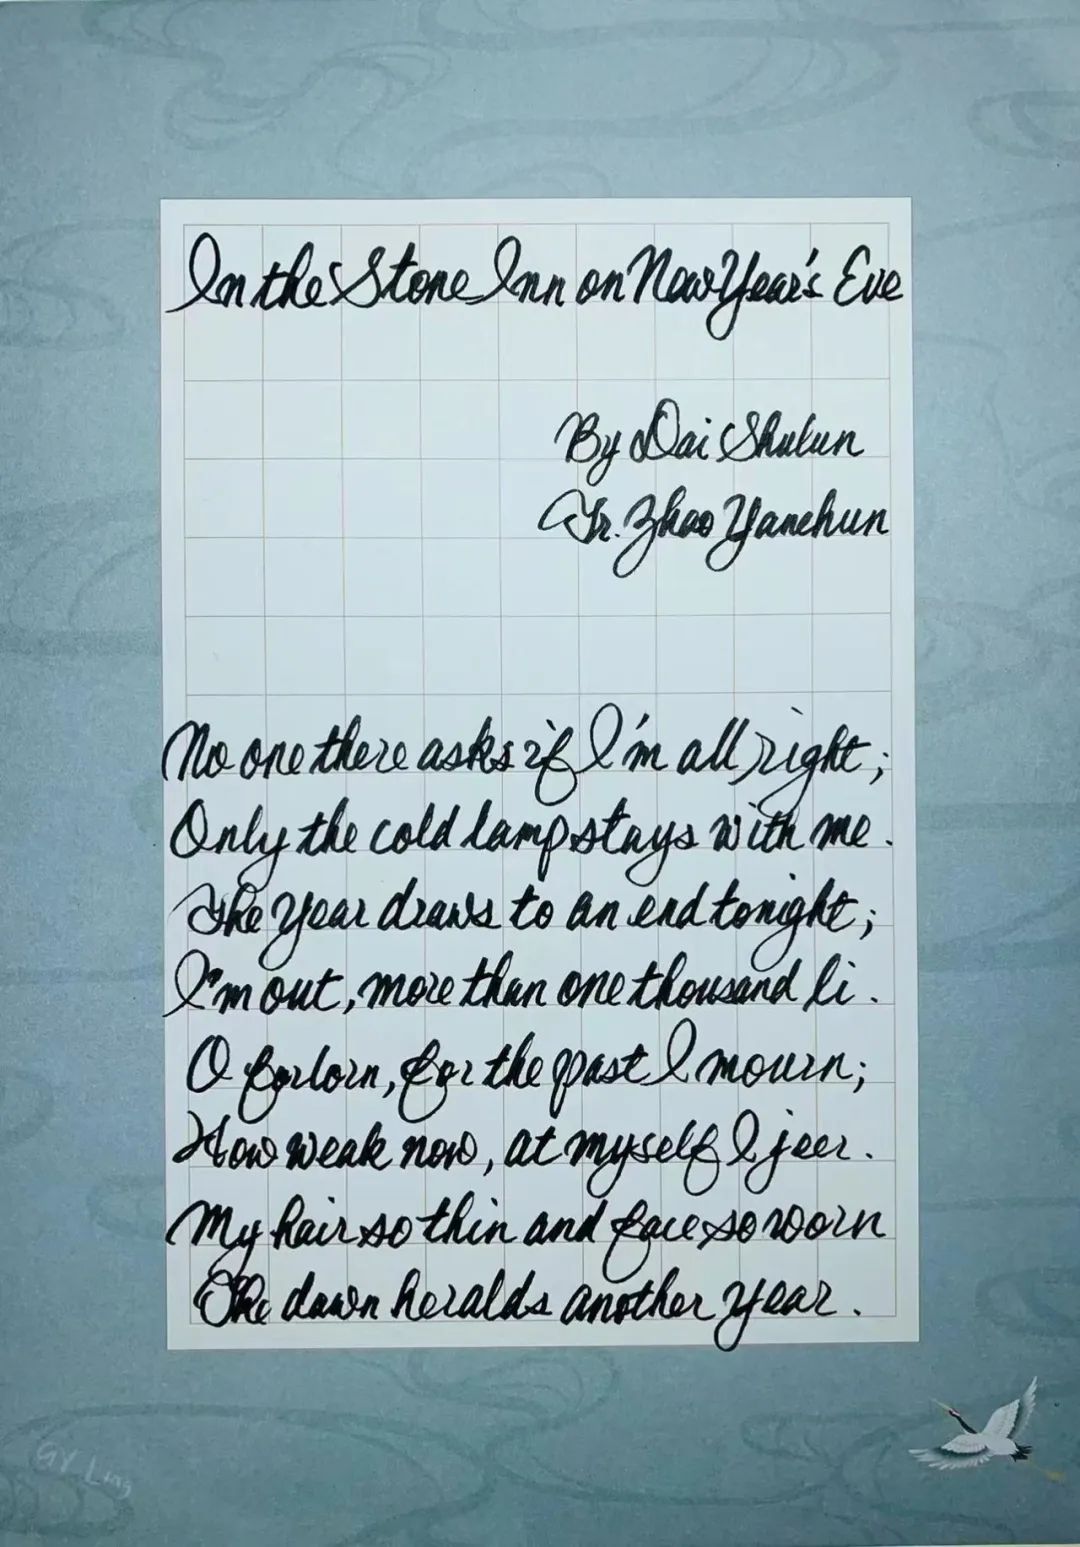 In the Stone Inn on New Year's Eve
By Dai Shulun
Tr. Zhao Yanchun
No one there asks if I'm all right;
Only the cold lamp stays with me.
The year draws to an end tonight;
I'm out, more than one thousand li.
O forlorn, for the past I mourn;
How weak now, at myself I jeer.
My hair so thin and face so worn
The dawn heralds another year.
GY Ling